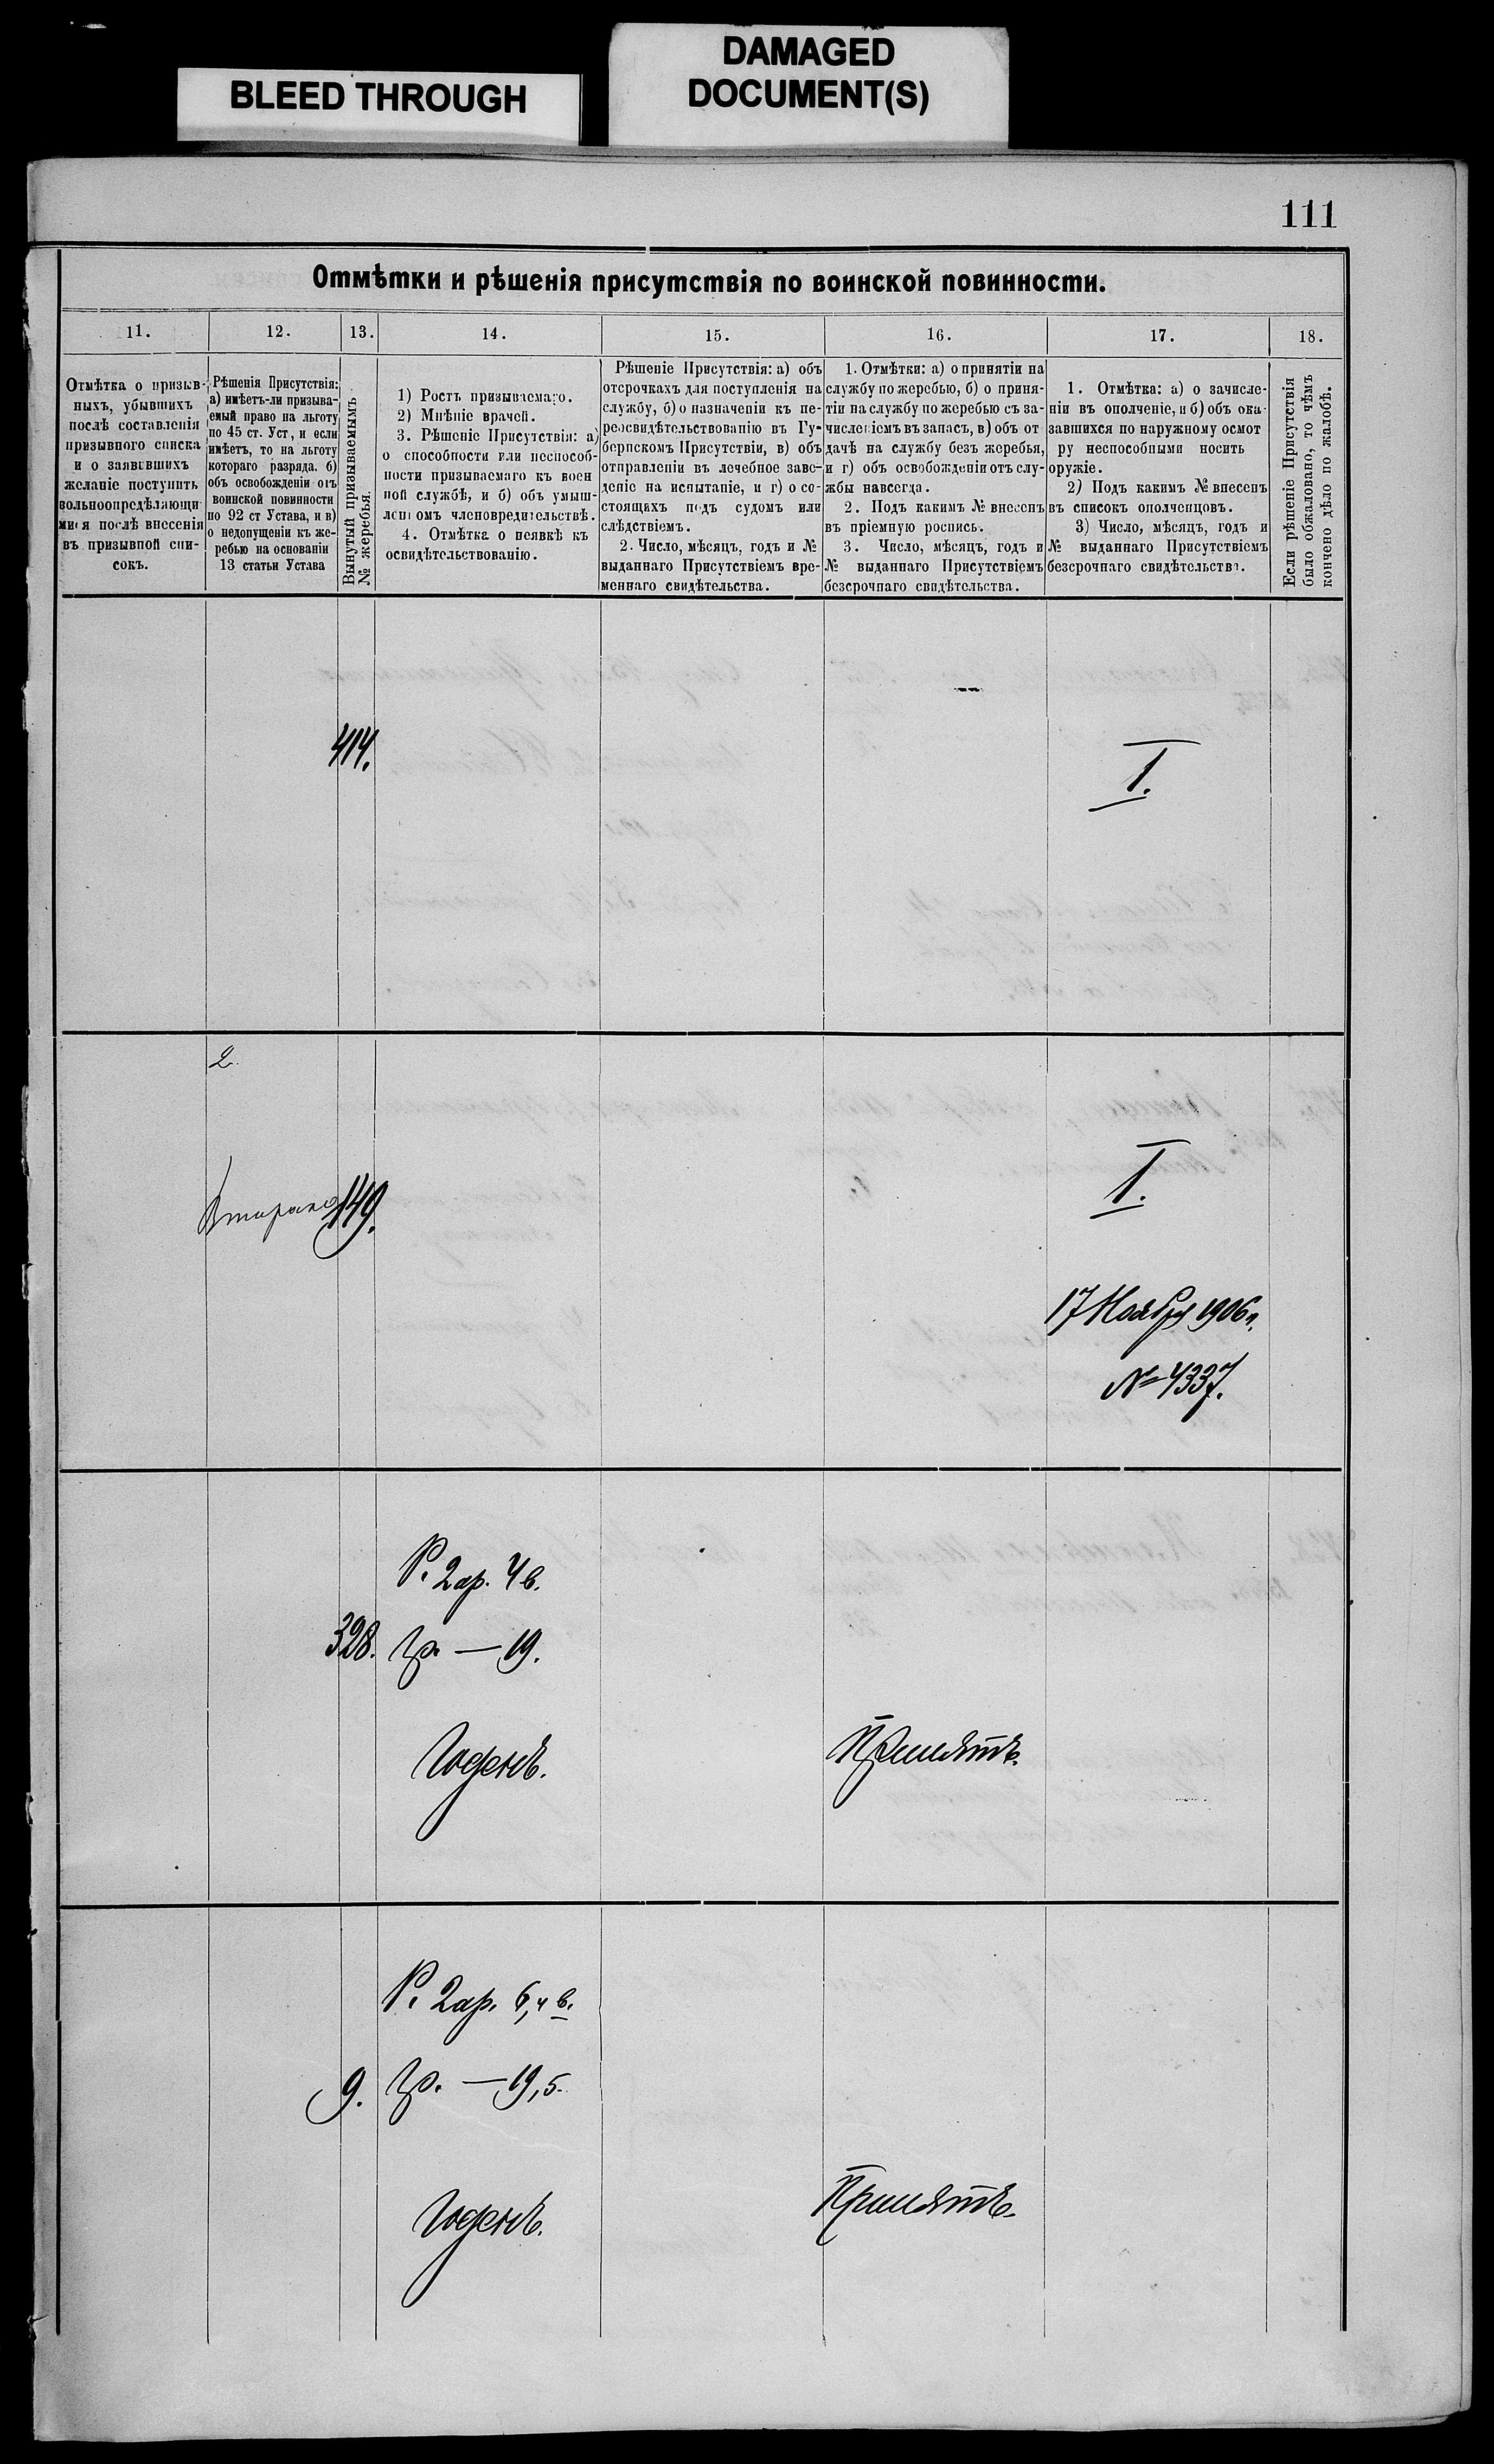 BLEED THROUGH
DAMAGED
DOCUMENT(S)
111
Отмѣтки и рѣшенія присутствія по воинской повинности.
11.
Отмѣтка о призыв-
ныхъ, убывшихъ
послѣ составленія
призывного списка
и о заявившихъ
желаніе поступить
вольноопредѣляющи
мися послѣ внесенія
въ призывной спи-
сокъ.
12.
Рѣшенія Присутствія:
а) имѣетъ-ли призыва-
емый право на льготу
по 45 ст. Уст, и если
имѣетъ, то на льготу
котораго разряда. б)
объ освобожденіи отъ
воинской повинности
по 92 ст Устава, и в)
о недопущеніи къ же-
ребью на основаніи
13 статьи Устава
13.
Вынутый призываемымъ
№ жеребья.
14.
1) Ростъ призываемаго.
2) Мнѣніе врачей.
3. Рѣшеніе Присутствія: а)
о способности или неспособ-
ности призываемаго къ воен
ной службѣ, и б) объ умыш-
ленномъ членовредительствѣ.
4. Отмѣтка о неявкѣ къ
освидѣтельствованію.
15.
Рѣшеніе Присутствія: а) объ
отсрочкахъ для поступленія на
службу, б) о назначеніи къ пе-
реосвидѣтельствованію въ Гу-
бернскомъ Присутствіи, в) объ
отправленіи въ лечебное заве-
деніе на испытаніе, и г) о со-
стоящихъ подъ судомъ или
слѣдствіемъ.
2. Число, мѣсяцъ, годъ и №
выданнаго Присутствіемъ вре-
меннаго свидѣтельства.
16.
1. Отмѣтки: а) о принятіи на
службу по жеребью, б) о приня-
тіи на службу по жеребью съ за-
численіемъ въ запасъ, в) объ от
дачѣ на службу безъ жеребья,
и г) объ освобожденіи отъ слу-
жбы навсегда.
2. Подъ какимъ № внесенъ
въ пріемную роспись.
3. Число, мѣсяцъ, годъ и
№ выданнаго Присутствіемъ
безсрочнаго свидѣтельства.
17.
1. Отмѣтка: а) о зачисле-
ніи въ ополченіе, и б) объ ока-
завшихся по наружному осмот
ру неспособными носить
оружіе.
2) Подъ какимъ № внесенъ
въ списокъ ополченцовъ.
3) Число, мѣсяцъ, годъ и
№ выданнаго Присутствіемъ
безсрочнаго свидѣтельства.
18.
Если рѣшеніе Присутствія
было обжаловано, то чѣмъ
кончено дѣло по жалобѣ.
414.
I.
2
149.
I.
17 Ноября 1906 г.
№ 4337.
Р. 2 ар. 4 в.
328.
гр. — 19.
Годенъ.
Принятъ.
Р. 2 ар. 6,4 в.
9.
гр. — 19,5
Годенъ.
Принятъ.